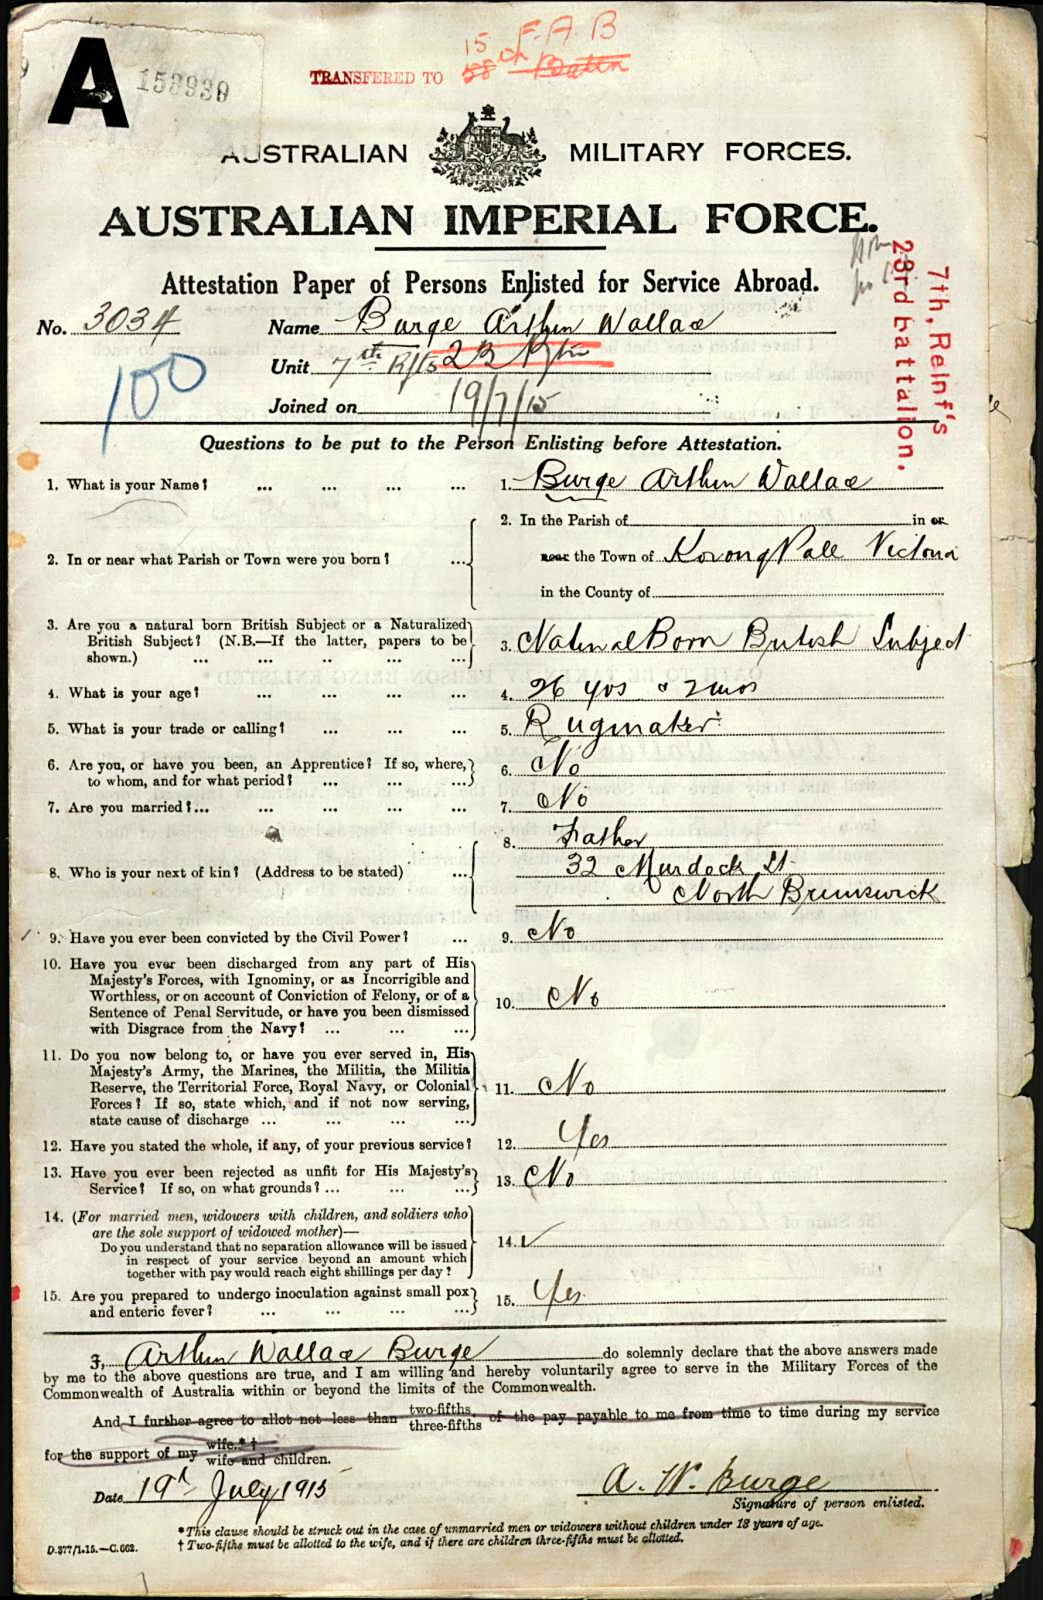 A 153939
TRANSFERED TO 15 F.A.B
58 th Battn
AUSTRALIAN MILITARY FORCES.
AUSTRALIAN IMPERIAL FORCE.
Attestation Paper of Persons Enlisted for Service Abroad.
7th, Reinf's
23rd battalion.
No. 3034 Name Burge Arthur Wallace
100
Unit 7th Rfts 23 Bn
Joined on 19/7/15
Questions to be put to the Person Enlisting before Attestation.
1. What is your Name? ... ... ... ... 1. Burge Arthur Wallace
2. In or near what Parish or Town were you born? ... 2. In the Parish of in or
near the Town of Korong Vale Victoria
in the County of
3. Are you a natural born British Subject or a Naturalized
British Subject? (N.B.—If the latter, papers to be
shown.) ... ... .. ... ... 3. Natural Born British Subject
4. What is your age? ... ... ... ... 4. 26 yrs 2 mos
5. What is your trade or calling? ... ... ... 5. Rugmaker
6. Are you, or have you been, an Apprentice? If so, where,
to whom, and for what period? ... ... ... 6. No
7. Are you married?... ... ... ... ... 7. No
8. Who is your next of kin? (Address to be stated) ... 8. Father
32 Murdock St
North Brunswick
9. Have you ever been convicted by the Civil Power? ... 9. No
10. Have you ever been discharged from any part of His
Majesty's Forces, with Ignominy, or as Incorrigible and
Worthless, or on account of Conviction of Felony, or of a
Sentence of Penal Servitude, or have you been dismissed
with Disgrace from the Navy? ... ... ... 10. No
11. Do you now belong to, or have you ever served in, His
Majesty's Army, the Marines, the Militia, the Militia
Reserve, the Territorial Force, Royal Navy, or Colonial
Forces? If so, state which, and if not now serving,
state cause of discharge ... ... ... ... 11. No
12. Have you stated the whole, if any, of your previous service? 12. Yes
13. Have you ever been rejected as unfit for His Majesty's
Service? If so, on what grounds? ... ... ... 13. No
14. (For married men, widowers with children, and soldiers who
are the sole support of widowed mother)—
Do you understand that no separation allowance will be issued
in respect of your service beyond an amount which
together with pay would reach eight shillings per day? 14. ✓
15. Are you prepared to undergo inoculation against small pox
and enteric fever? ... ... ... ... 15. Yes
I, Arthur Wallace Burge do solemnly declare that the above answers made
by me to the above questions are true, and I am willing and hereby voluntarily agree to serve in the Military Forces of the
Commonwealth of Australia within or beyond the limits of the Commonwealth.
And I further agree to allot not less than two-fifths three-fifths of the pay payable to me from time to time during my service
for the support of my wife.*† wife and children.
Date 19th July 1915 A. W. Burge
Signature of person enlisted.
*This clause should be struck out in the case of unmarried men or widowers without children under 18 years of age.
D.377/1.15.—C.662. † Two-fifths must be allotted to the wife, and if there are children three-fifths must be allotted.